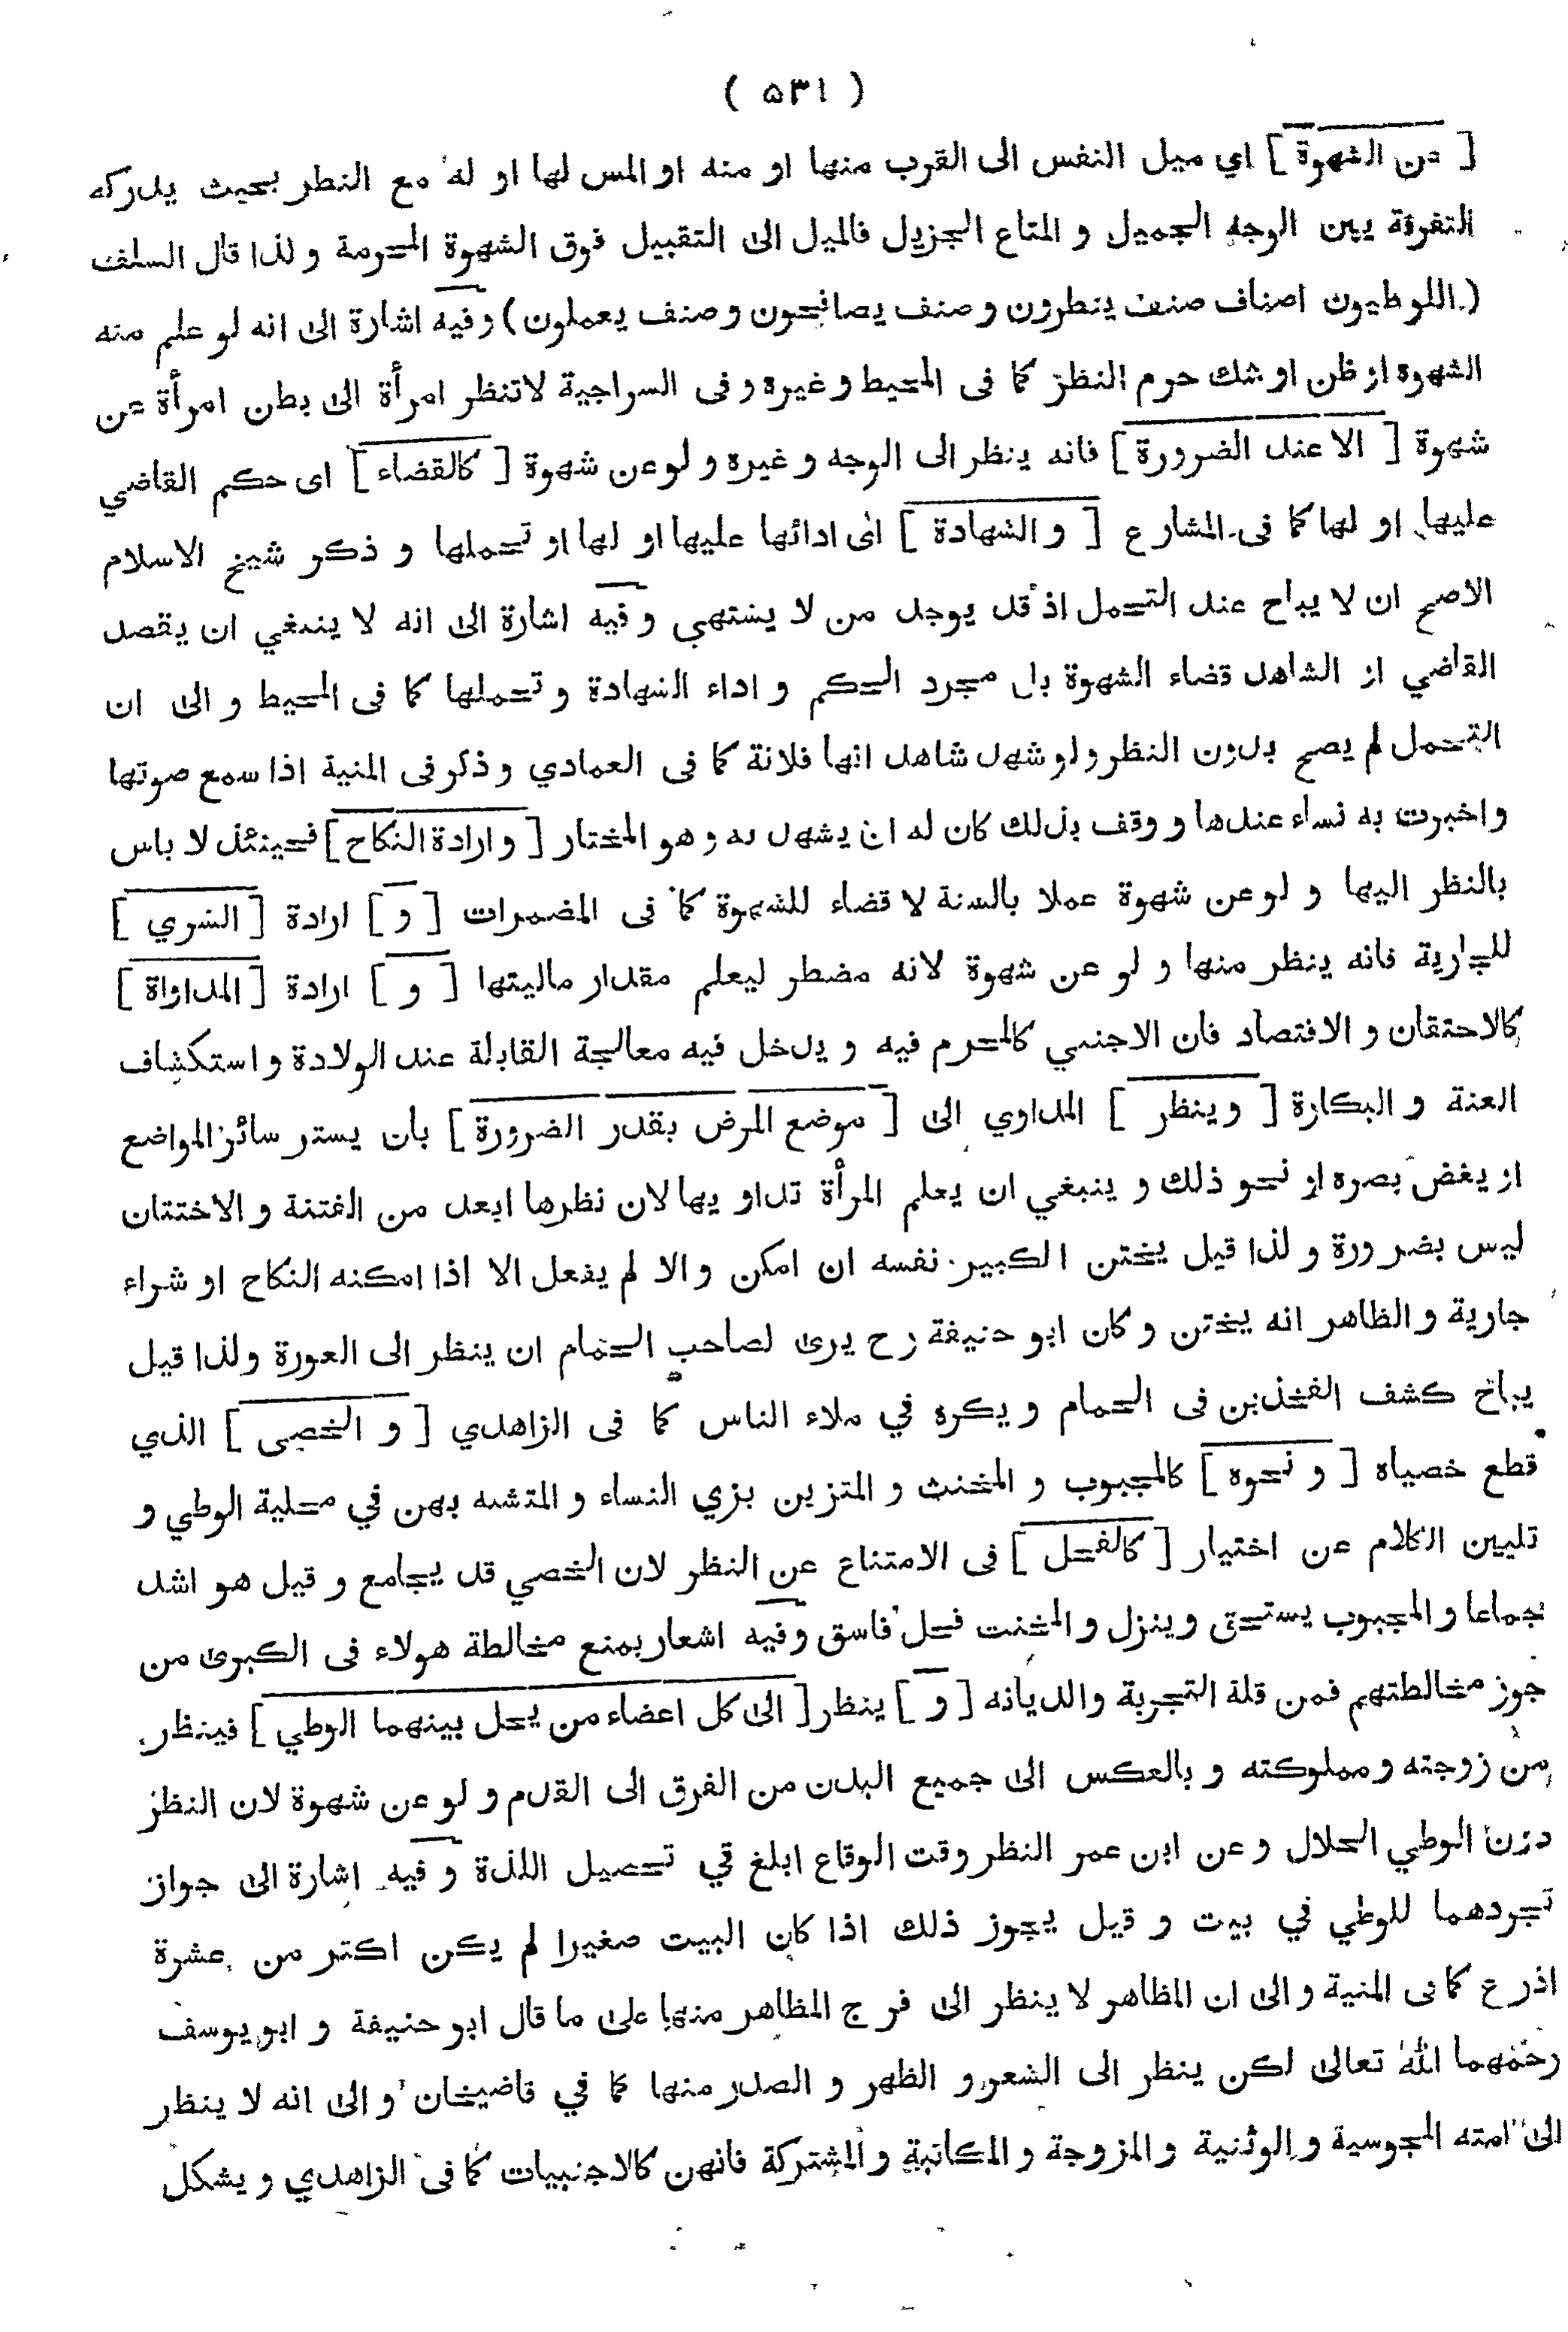 ( ۵۳۱ )
[ عن الشهوة ] اي ميل النفس الى القرب منها او منه او المس لها او له مع النظر بحيث يدركه
التفرقة بين الوجه الجميل و المتاع الجزيل فالميل الى التقبيل فوق الشهوة المحرمة و لذا قال السلف
( اللوطيون اصناف صنف ينظرون و صنف يصافحون و صنف يعملون ) وفيه اشارة الى انه لو علم منه
الشهوة او ظن او شك حرم النظر كما فى المحيط و غيره و فى السراجية لاتنظر امرأة الى بطن امرأة عن
شهوة [ الا عند الضرورة ] فانه ينظر الى الوجه و غيره و لو عن شهوة [ كالقضاء ] اى حكم القاضي
عليها او لها كما فى المشارع [ و الشهادة ] اى ادائها عليها او لها او تحملها و ذكر شيخ الاسلام
الاصح ان لا يباح عند التحمل اذ قد يوجد من لا يشتهي و فيه اشارة الى انه لا ينبغي ان يقصد
القاضي او الشاهد قضاء الشهوة بل مجرد الحكم و اداء الشهادة و تحملها كما فى المحيط و الى ان
التحمل لم يصح بدون النظر و لو شهد شاهد انها فلانة كما فى العمادي و ذكر فى المنية اذا سمع صوتها
و اخبرت به نساء عندها و وقف بذلك كان له ان يشهد به و هو المختار [ و ارادة النكاح ] فحينئذ لا باس
بالنظر اليها و لو عن شهوة عملا بالسنة لا قضاء للشهوة كما فى المضمرات [ و ] ارادة [ الشري ]
للجارية فانه ينظر منها و لو عن شهوة لانه مضطر ليعلم مقدار ماليتها [ و ] ارادة [ المداواة ]
كالاحتقان و الافتصاد فان الاجنبي كالمحرم فيه و يدخل فيه معالجة القابلة عند الولادة و استكشاف
العنة و البكارة [ و ينظر ] المداوي الى [ موضع المرض بقدر الضرورة ] بأن يستر سائر المواضع
او يغض بصره او نحو ذلك و ينبغي ان يعلم المرأة تداويها لان نظرها ابعد من الفتنة و الاختتان
ليس بضرورة و لذا قيل يختن الكبير نفسه ان امكن و الا لم يفعل الا اذا امكنه النكاح او شراء
جارية و الظاهر انه يختن و كان ابو حنيفة رح يرى لصاحب الحمام ان ينظر الى العورة ولذا قيل
يباح كشف الفخذين فى الحمام و يكره في ملاء الناس كما فى الزاهدي [ و الخصى ] الذي
قطع خصياه [ و نحوه ] كالمجبوب و المخنث و المتزين بزي النساء و المتشبه بهن في محلية الوطي و
تليين الكلام عن اختيار [ كالفحل ] فى الامتناع عن النظر لان الخصي قد يجامع و قيل هو اشد
جماعا و المجبوب يستحق وينزل و المخنث فحل فاسق وفيه اشعار بمنع مخالطة هولاء فى الكبرى من
جوز مخالطتهم فمن قلة التجربة والديانه [ و ] ينظر [ الى كل اعضاء من يحل بينهما الوطي ] فينظر
من زوجته و مملوكته و بالعكس الى جميع البدن من الفرق الى القدم و لو عن شهوة لان النظر
دون الوطي الحلال و عن ابن عمر النظر وقت الوقاع ابلغ في تحصيل اللذة و فيه اشارة الى جواز
تجردهما للوطي في بيت و قيل يجوز ذلك اذا كان البيت صغيرا لم يكن اكثر من عشرة
اذرع كما فى المنية و الى ان المظاهر لا ينظر الى فرج المظاهر منها على ما قال ابو حنيفة و ابو يوسف
رحمهما الله تعالى لكن ينظر الى الشعر و الظهر و الصدر منها كما في قاضيخان و الى انه لا ينظر
الى امته المجوسية و الوثنية و المزوجة و المكاتبة و المشتركة فانهن كالاجنبيات كما فى الزاهدي و يشكل